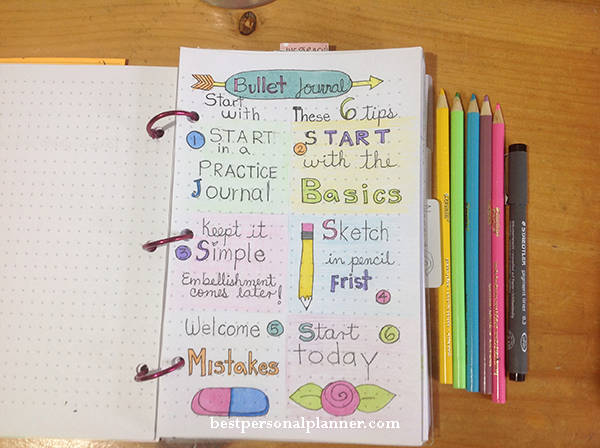 Bullet Journal
Start with
These 6 tips
1 START
in a
PRACTICE
Journal
2 START
with the
Basics
Keept it
3 Simple
Embellishment
comes later!
Sketch
in pencil
Frist
4
Welcome 5
Mistakes
Start 6
today
STAEDTLER
pigment liner 0.3
bestpersonalplanner.com